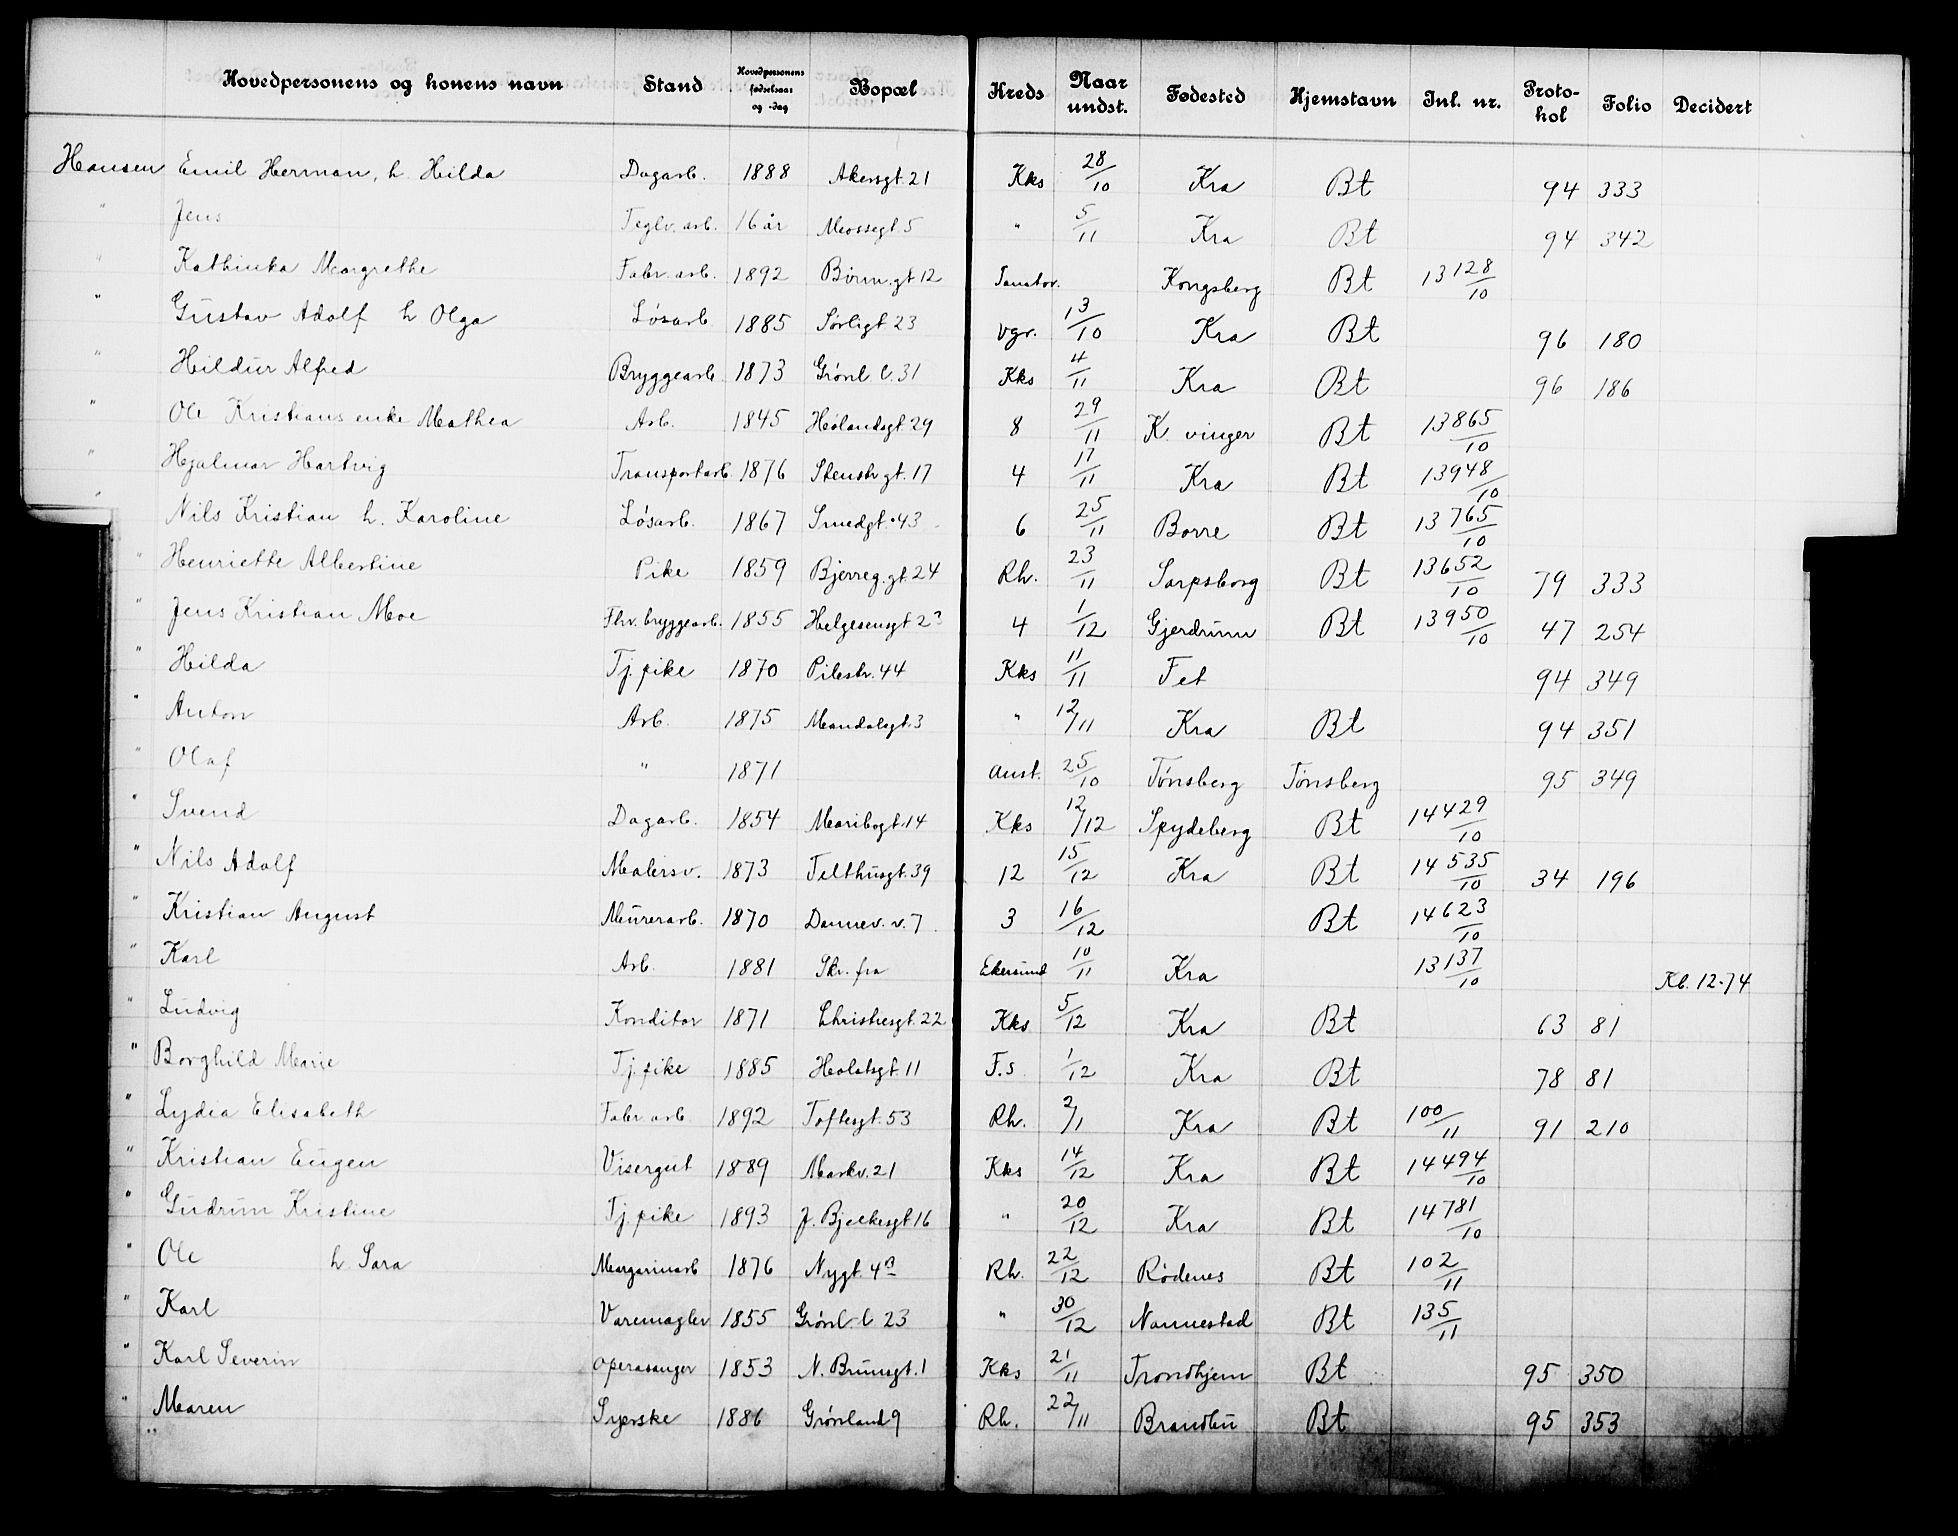 Hovedpersonens og konens navn Stand Hovedpersonens fødselsaar og -dag Bopæl Kreds Naar undst. Fødested Hjemstavn Inl. nr. Protokol Folio Decidert
Hansen Emil Herman, h. Hilda Dagarb. 1888 Akersgt. 21 Kks 28/10 Kra Bt 94 333
" Jens Teglv. arb. 16 år Mossegt. 5 " 5/11 Kra Bt 94 342
" Kathinka Margrethe Fabr. arb. 1892 Børn.gt 12 Sanator. Kongsberg Bt 13128/10
" Gustav Adolf h Olga Løsarb 1885 Sørligt 23 Vgr. 13/10 Kra Bt 96 180
" Hildur Alfred Bryggearb. 1873 Grønl. l. 31 Kks 4/11 Kra Bt 96 186
" Ole Kristians enke Mathea Arb. 1845 Hølandsgt. 29 8 29/11 K. vinger Bt 13865/10
" Hjalmar Hartvig Transportarb. 1876 Stenstr gt. 17 4 17/11 Kra Bt 13948/10
" Nils Kristian h. Karoline Løsarb. 1867 Smedgt. 43 6 25/11 Borre Bt 13765/10
" Henriette Albertine Pike 1859 Bjerreg. gt. 24 Rh. 23/11 Sarpsborg Bt 13652/10 79 333
" Jens Kristian Moe Fhv. bryggearb. 1855 Helgesensgt 2? 4 1/12 Gjerdrum Bt 13950/10 47 254
" Hilda Tj. pike 1870 Pilestr. 44 Kks 11/11 Fet 94 349
" Anton Arb. 1875 Mandalsgt. 3 " 12/11 Kra Bt 94 351
" Olaf " 1871 Aust. 25/10 Tønsberg Tønsberg 95 349
" Svend Dagarb. 1854 Maribogt. 14 Kks 12/12 Spydeberg Bt 14429/10
" Nils Adolf Malersv. 1873 Telthusgt. 39 12 15/12 Kra Bt 14535/10 34 196
" Kristian August Murerarb. 1870 Dannev. v. 7 3 16/12 Bt 14623/10
" Karl Arb. 1881 Skr. fra Ekersund 10/11 Kra 13137/10 Kl. 12-74
" Ludvig Konditor 1871 Christiesgt. 22 Kks 5/12 Kra Bt 63 81
" Borghild Marie Tj. pike 1885 Holstsgt. 11 F.s. 1/12 Kra Bt 78 81
" Lydia Elisabeth Fabr. arb. 1892 Toftesgt. 53 Rh. 2/1 Kra Bt 100/11 91 210
" Kristian Eugen Visergut 1889 Markv. 21 Kks 14/12 Kra Bt 14494/10
" Gudrun Kristine Tj. pike 1893 J. Bjelkesgt 16 " 20/12 Kra Bt 14781/10
" Ole h Sara Margarinarb 1876 Nygt. 4B Rh. 22/12 Rødenes Bt 102/11
" Karl Varemægler 1855 Grønl. l 23 " 30/12 Nannestad Bt 135/11
" Karl Severin Operasanger 1853 N. Brunsgt. 1 Kks 21/11 Trondhjem Bt 95 350
" Maren Syerske 1886 Grønland 9 Rh. 22/11 Brandbu Bt 95 353
"